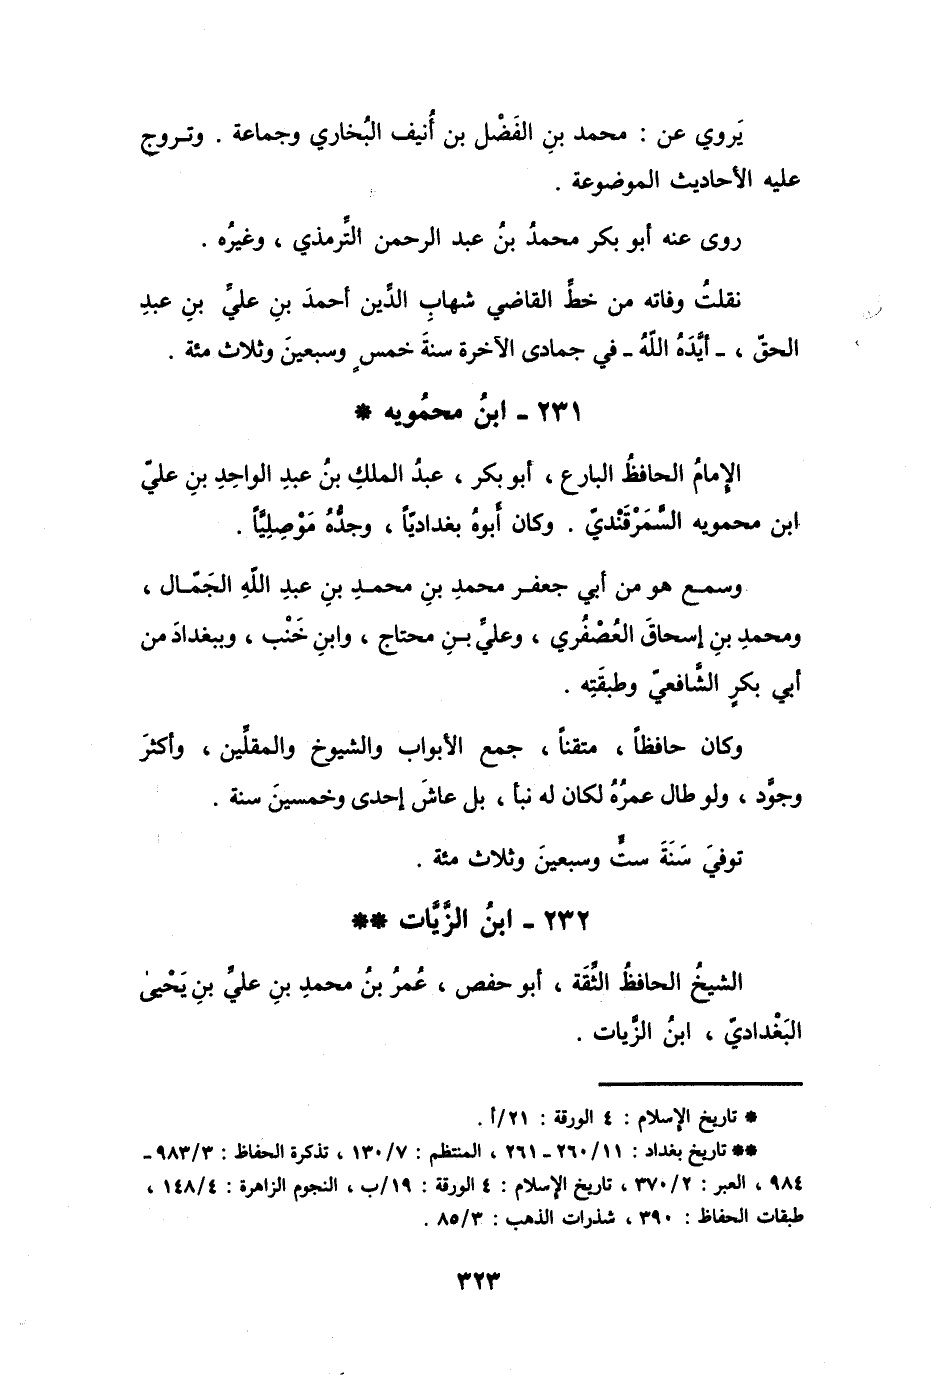 يَروي عن : محمد بنِ الفَضْل بن أُنيف البُخاري وجماعة . وتـروج
عليه الأحاديث الموضوعة .
روى عنه أبو بكر محمدُ بنُ عبد الرحمن التِّرمذي ، وغيرُه .
نقلتُ وفاته من خطِّ القاضي شهابِ الدِّين أحمدَ بنِ عليِّ بنِ عبدِ
الحقّ ، ـ أيَّدَهُ اللّهُ ـ في جمادى الآخرة سنةَ خمسٍ وسبعينَ وثلاث مئة .
٢٣١ ـ ابنُ محمُويه *
الإِمامُ الحافظُ البارع ، أبو بكر ، عبدُ الملكِ بنُ عبدِ الواحِدِ بنِ عليّ
ابن محمويه السَّمَرْقَنْديّ . وكان أَبوهُ بغداديّاً ، وجدُّهُ مَوْصِلِيَّاً .
وسمـع هو من أبي جعفـر محمدِ بنِ محمـدِ بنِ عبدِ اللّهِ الجَمّـال ،
ومحمدِ بنِ إسحاقَ العُصْفُري ، وعليِّ بـنِ محتاج ، وابنِ خَنْب ، وببغدادَ من
أبي بكرٍ الشَّافعيّ وطبقَتِه .
وكان حافظاً ، متقناً ، جمع الأبواب والشيوخ والمقلِّين ، وأكثرَ
وجوَّد ، ولو طال عمرُهُ لكان له نبأ ، بل عاشَ إحدى وخمسينَ سنة .
توفيَ سَنَةَ ستٍّ وسبعينَ وثلاث مئة .
٢٣٢ ـ ابنُ الزَّيَّات **
الشيخُ الحافظُ الثِّقَة ، أبو حفص ، عُمرُ بنُ محمدِ بنِ عليِّ بنِ يَحْيىٰ
البَغْداديّ ، ابنُ الزَّيات .
* تاريخ الإسلام : ٤ الورقة : ٢١/أ .
** تاريخ بغداد : ١١/ ٢٦٠ ـ ٢٦١ ، المنتظم : ٧/ ١٣٠ ، تذكرة الحفاظ : ٣/ ٩٨٣ ـ
٩٨٤ ، العبر : ٢/ ٣٧٠ ، تاريخ الإسلام : ٤ الورقة : ١٩/ب ، النجوم الزاهرة : ٤/ ١٤٨ ،
طبقات الحفاظ : ٣٩٠ ، شذرات الذهب : ٣/ ٨٥ .
٣٢٣